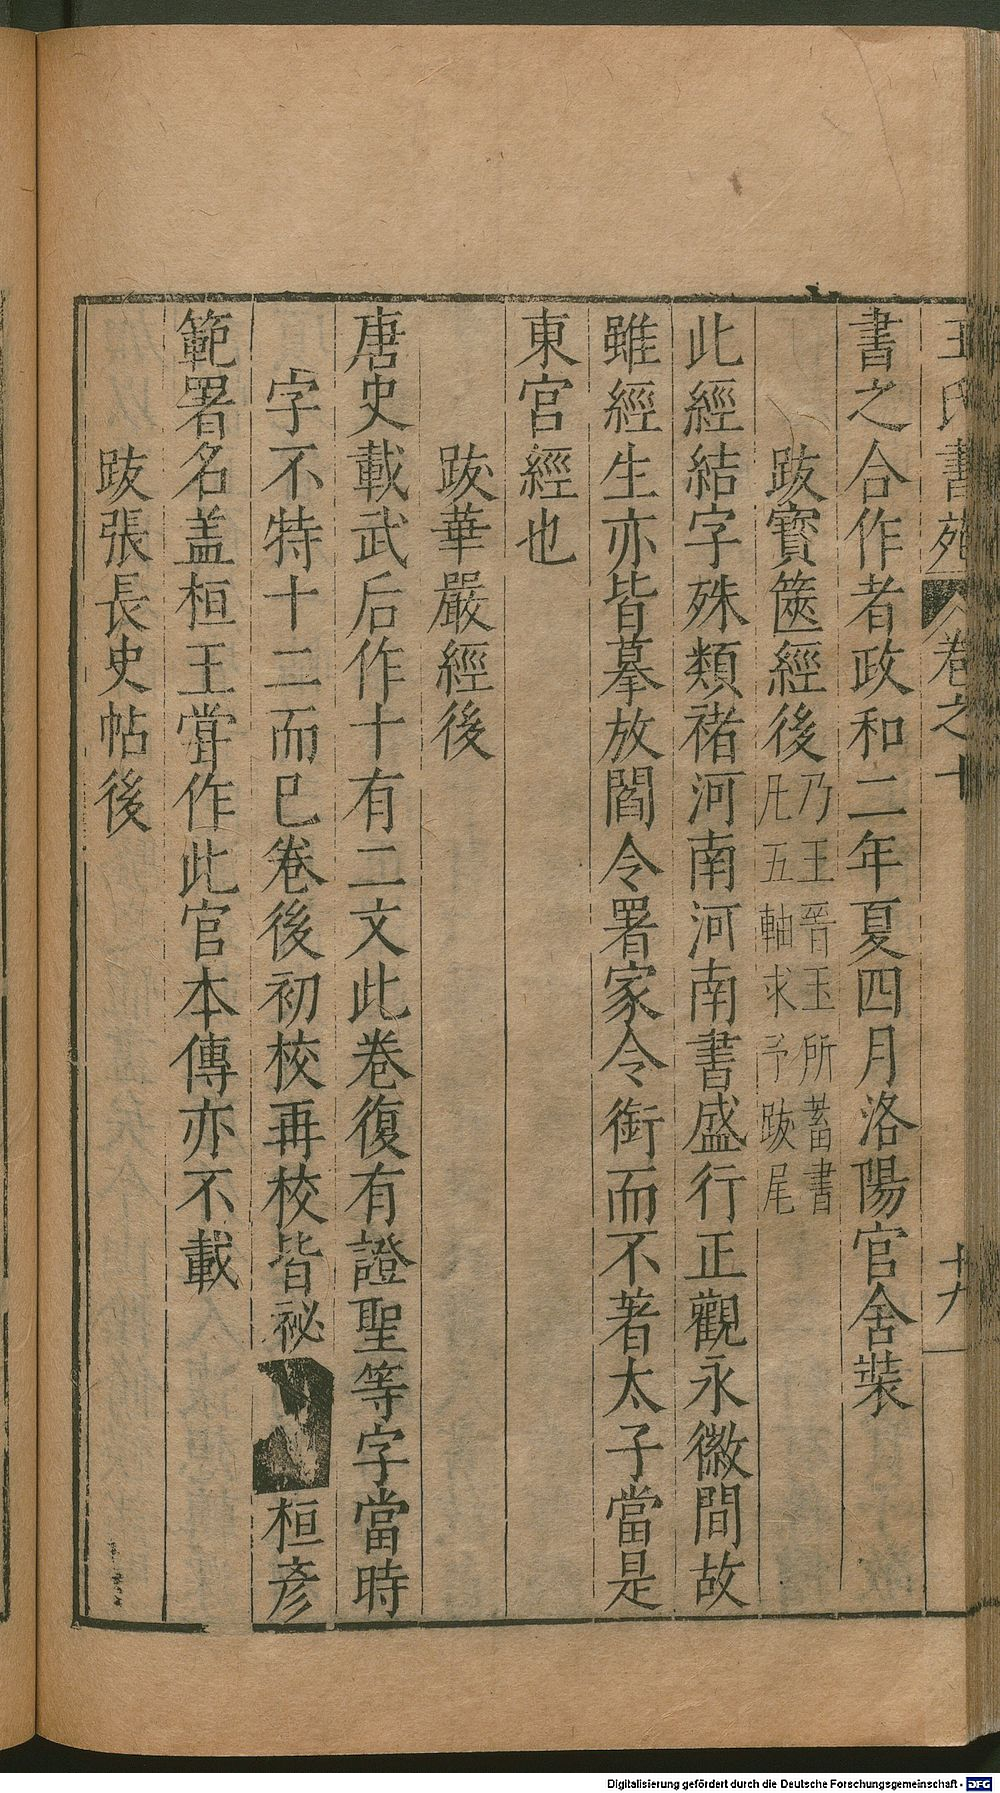 王氏書苑 卷之十 十九
書之合作者政和二年夏四月洛陽官舍裝
跋寶篋經後 乃王晉玉所蓄書 凡五軸求予跋尾
此經結字殊類褚河南河南書盛行正觀永徽間故
雖經生亦皆摹放閻令署家令銜而不著太子當是
東宮經也
跋華嚴經後
唐史載武后作十有二文此卷復有證聖等字當時
字不特十二而巳卷後初校再校皆祕 桓彥
範署名盖桓王甞作此官本傳亦不載
跋張長史帖後
Digitalisierung gefördert durch die Deutsche Forschungsgemeinschaft - DFG